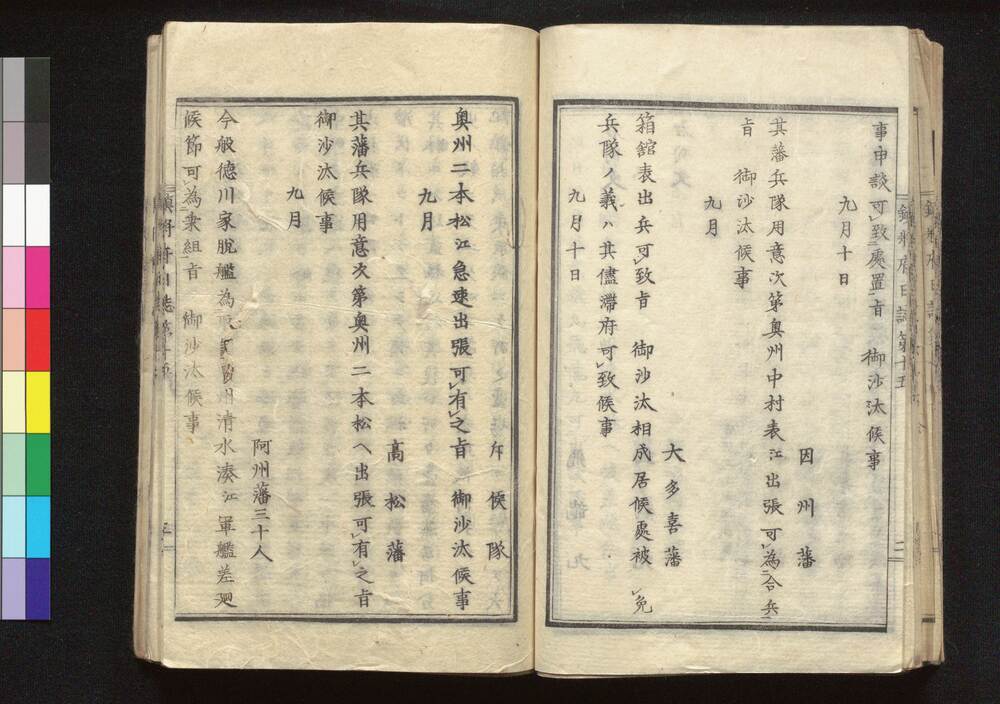 事申談可致處置旨　御沙汰候事
九月十日
因州藩
其藩兵隊用意次第奥州中村表江出張可為合兵
旨　御沙汰候事
九月
大多喜藩
箱舘表出兵可致旨　御沙汰相成居候處被　免
兵隊ノ義ハ其儘滞府可致候事
九月十日
鎮将府日誌第十五
二
斥候隊
奥州二本松江急速出張可有之旨　御沙汰候事
九月
高松藩
其藩兵隊用意次第奥州二本松ヘ出張可有之旨
御沙汰候事
九月
阿州藩三十人
今般德川家脱艦為　州清水湊江　軍艦差廻
候節可為乗組旨　御沙汰候事
鎮将府日誌第十五
三